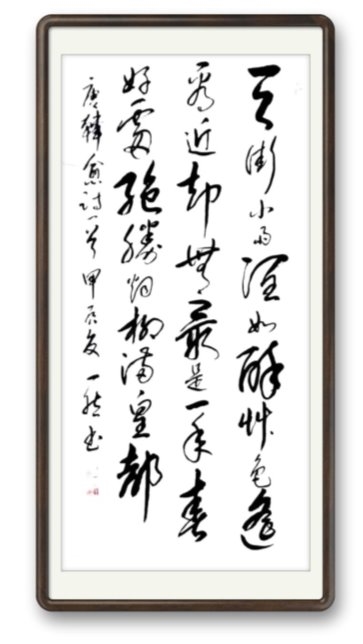 天街小雨潤如酥艸色遥
看近却無最是一年春
好處絶勝烟柳滿皇都
唐韓愈詩一首甲辰夏一然书